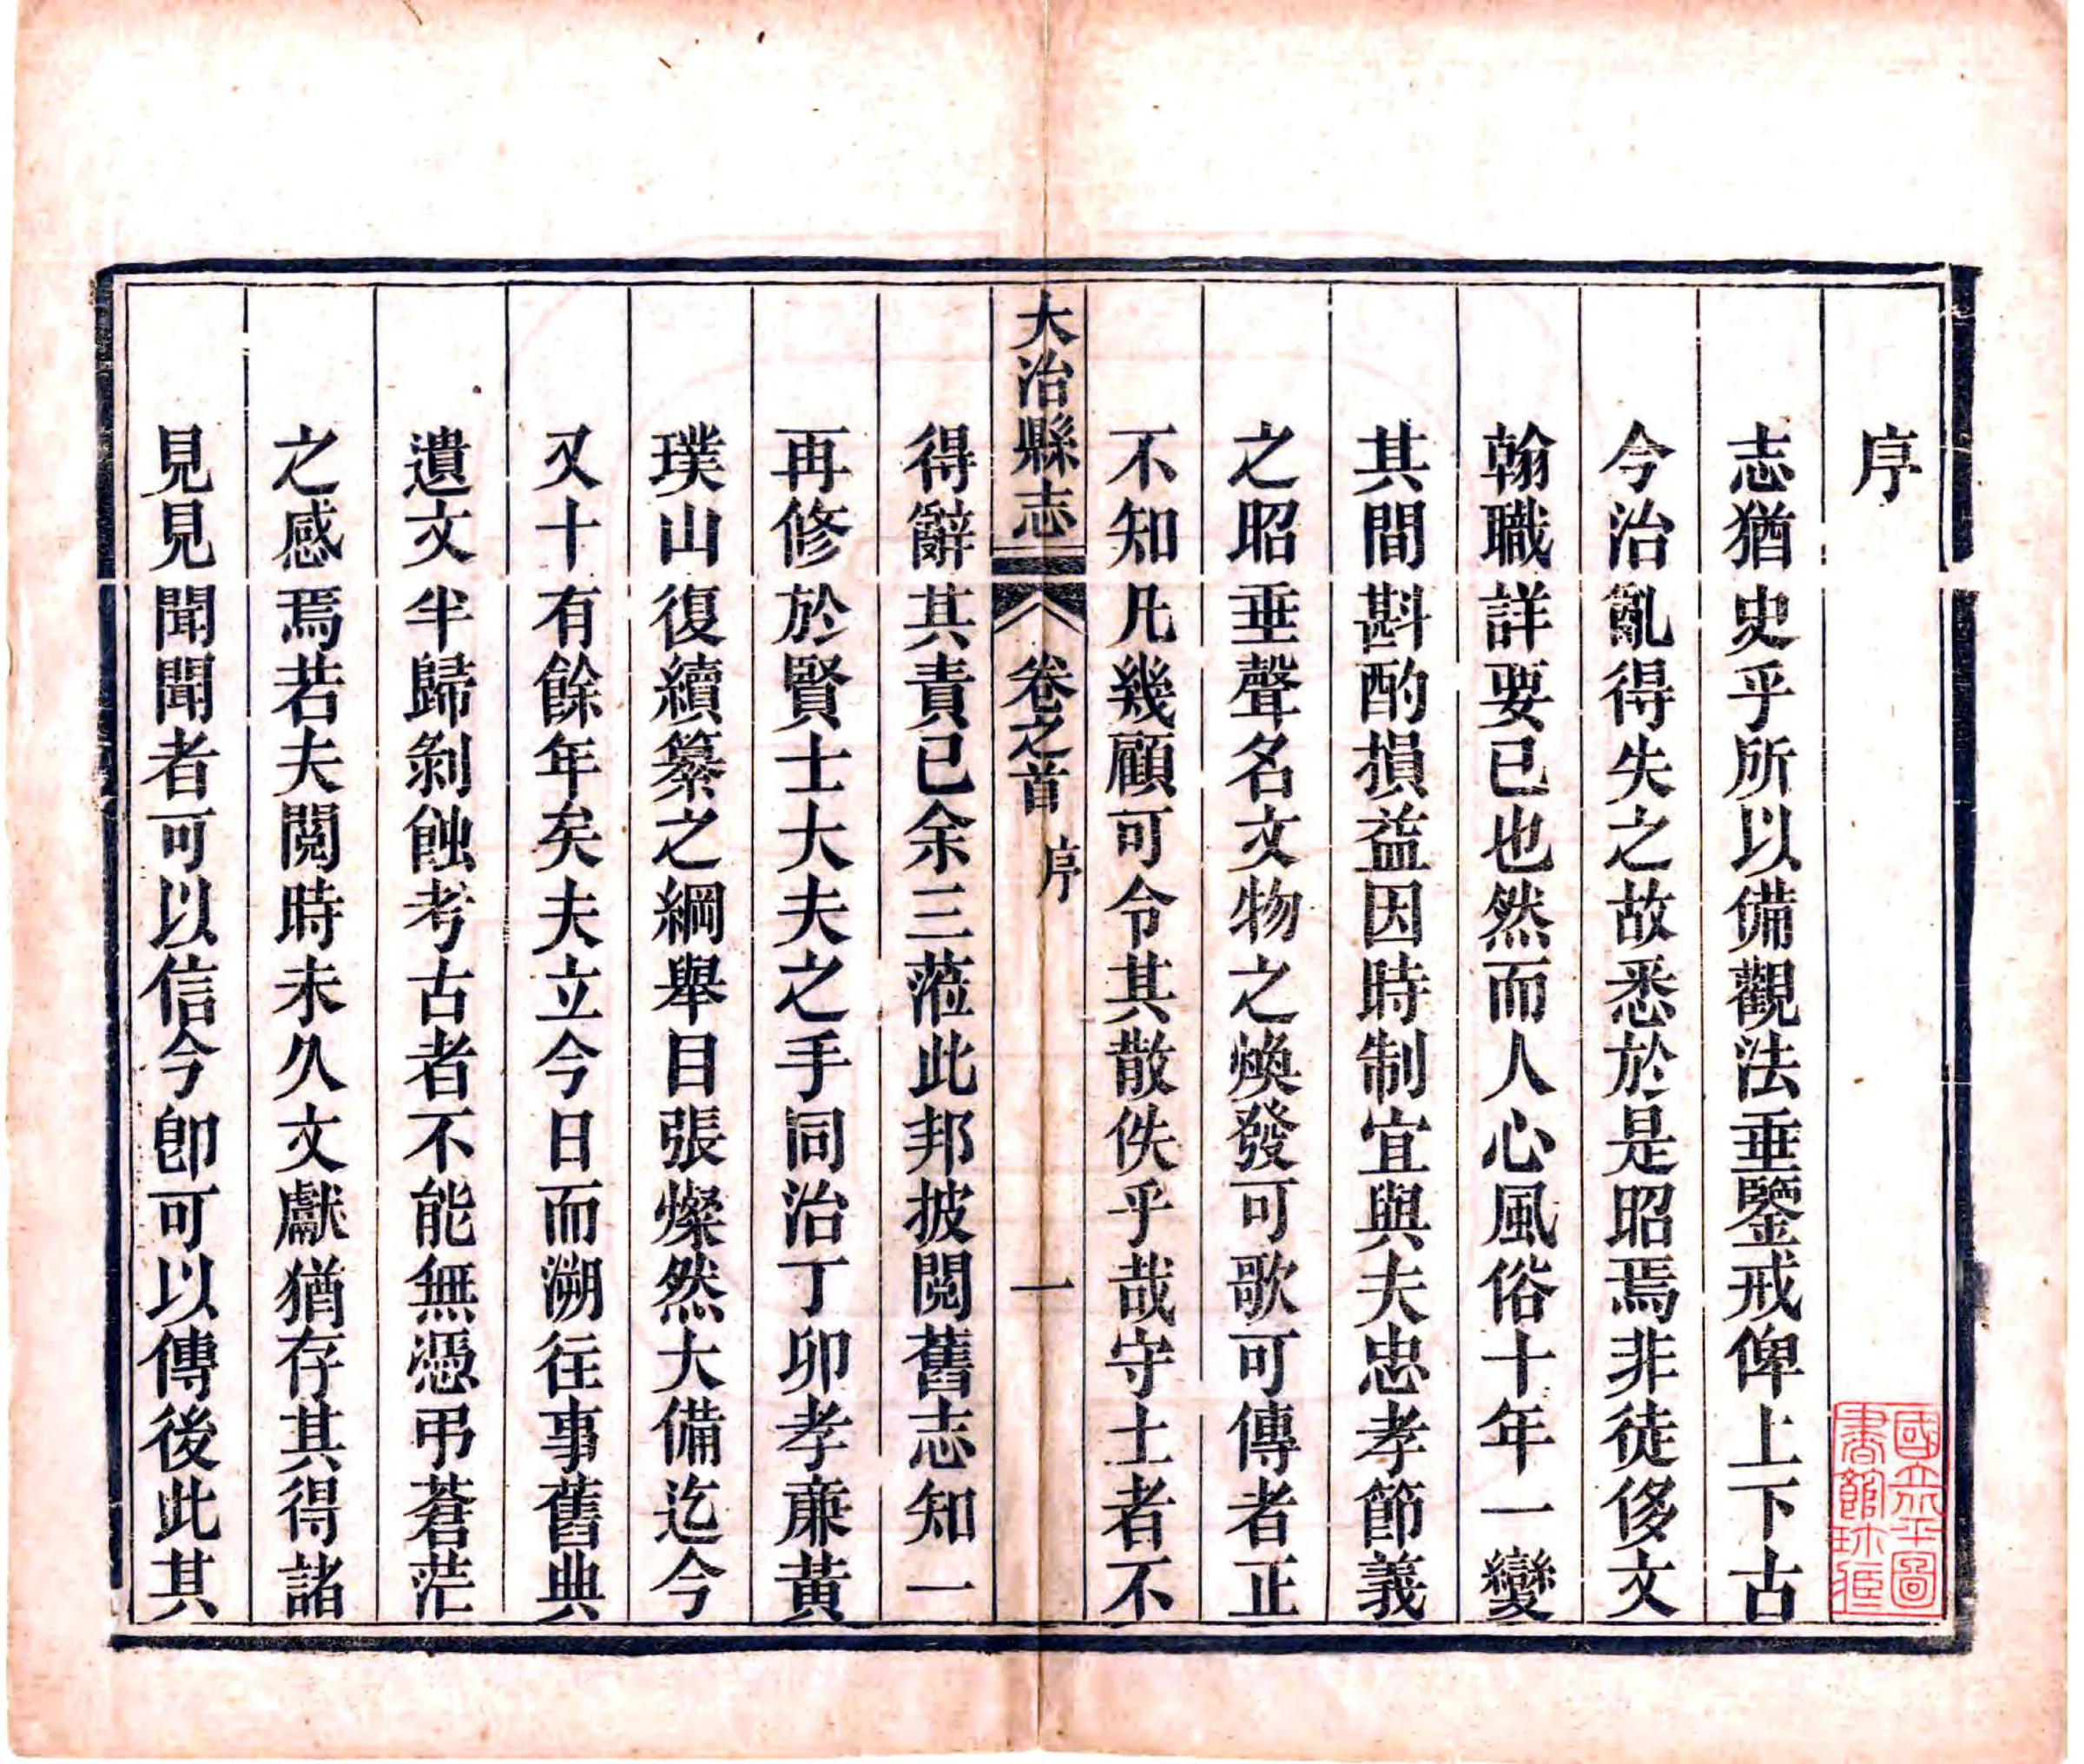 序
志猶史乎所以備觀法垂鑒戒俾上下古
今治亂得失之故悉於是昭焉非徒侈文
翰職詳要已也然而人心風俗十年一變
其間斟酌損益因時制宜與夫忠孝節義
之昭垂聲名文物之煥發可歌可傳者正
不知凡幾顧可令其散佚乎哉守土者不
大冶縣志
卷之首
序
一
得辭其責已余三蒞此邦披閱舊志知一
再修於賢士大夫之手同治丁卯孝廉黃
璞山復續纂之綱舉目張燦然大備迄今
又十有餘年矣夫立今日而溯往事舊典
遺文半歸剝蝕考古者不能無憑弔蒼茫
之感焉若夫閱時未久文獻猶存其得諸
見見聞聞者可以信今卽可以傳後此其
國立北平圖
書館珍藏